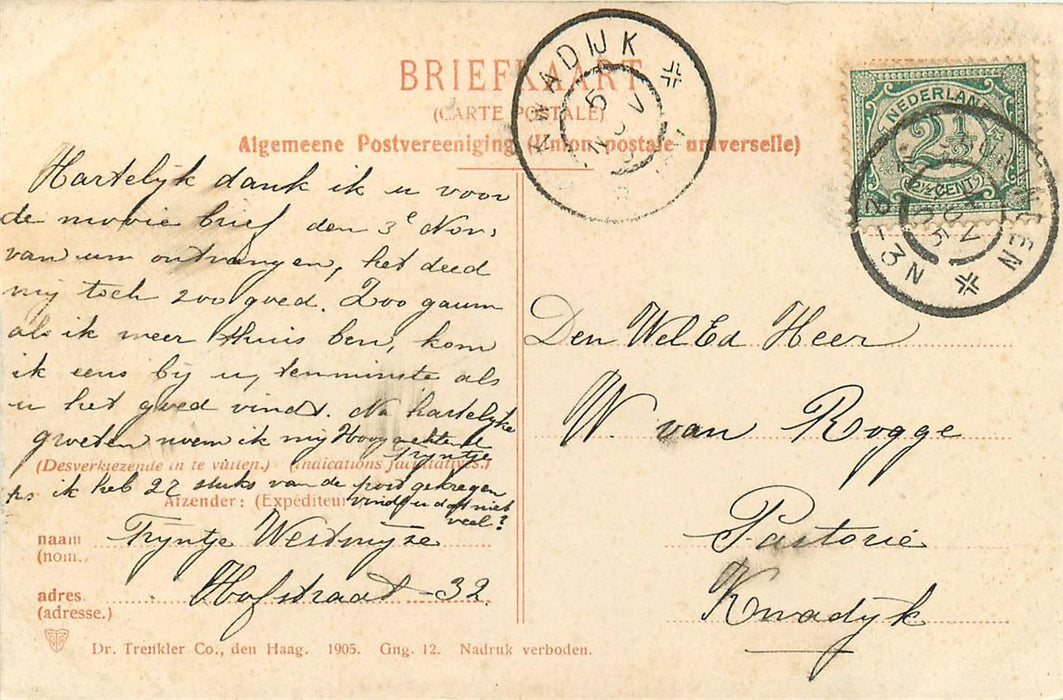 BRIEFKAART
(CARTE POSTALE)
Algemeene Postvereeniging (Union postale universelle)
KWADIJK
5 NOV
NEDERLAND
2½
(2½ CENT)
NOV 05
2-3N
Hartelijk dank ik u voor
de mooie brief den 3e Nov,
van um ontvangen, het deed
mij toch zoo goed. Zoo gauw
als ik weer thuis ben, kom
ik eens bij u, tenminste als
u het goed vindt. Na hartelijke
groeten noem ik mij Hoogachtend
Tryntje
(Desverkiezende in te vullen.) (Indications facultatives.)
ps ik heb 22 stuks van de post gekregen
vindt u dat niet
veel?
Afzender: (Expéditeur
naam Tryntje
(nom.)
adres. Hofstraat 32.
(adresse.)
Dr. Trenkler Co., den Haag. 1905. Gng. 12. Nadruk verboden.
Den WelEd Heer
W. van Rogge
Pastorie
Kwadyk